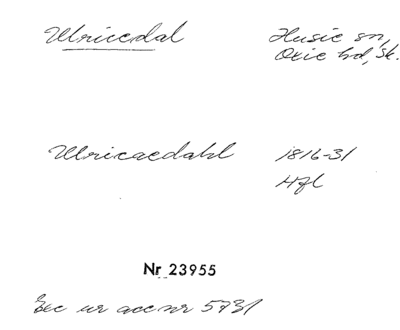 Ulricedal
Husie sn,
Oxie hd, Sk.
Ulricaedahl
1816-31
Hfl
Nr 23955
Exc ur acc nr 5731